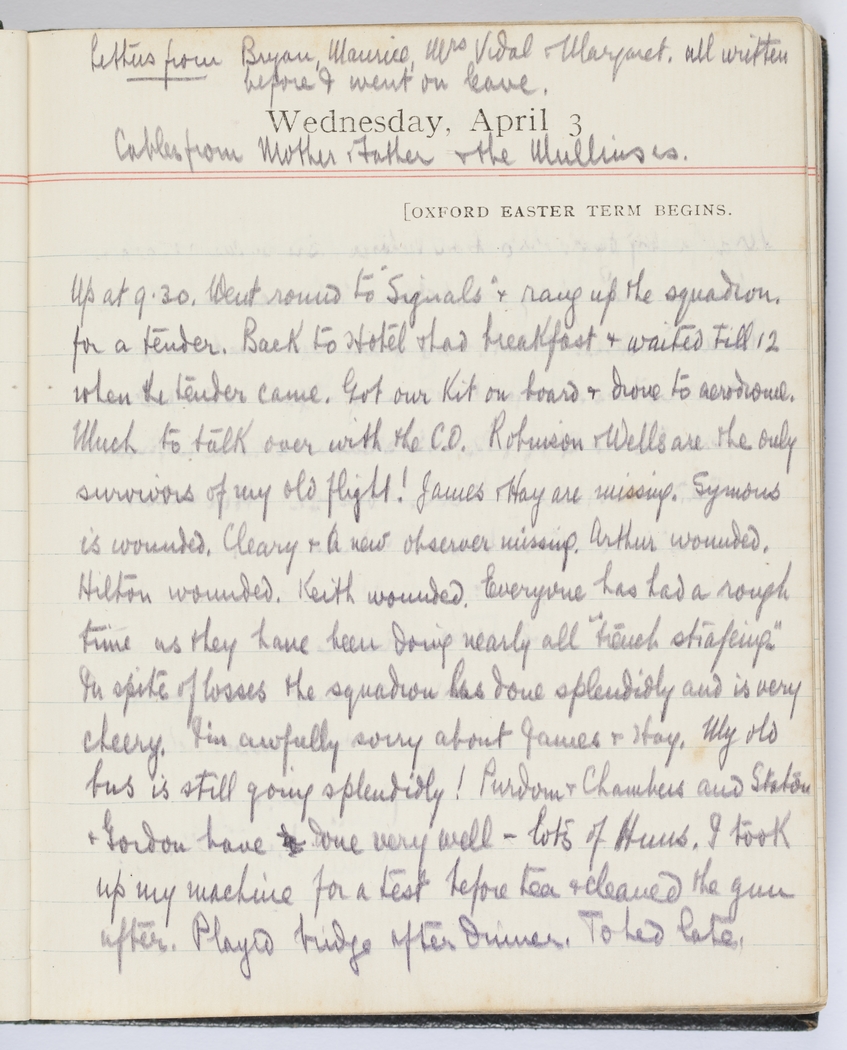 Letters from Bryan, Maurice, Mrs Vidal & Margaret. all written
before I went on leave.
Wednesday, April 3
Cables from Mother & Father & the Mullinses.
[OXFORD EASTER TERM BEGINS.
Up at 9.30. Went round to "Signals" & rang up the squadron.
for a tender. Back to Hotel & had breakfast & waited till 12
when the tender came. Got our kit on board & drove to aerodrome.
Much to talk over with the C.O. Robinson & Wells are the only
survivors of my old flight! James & Hay are missing. Symons
is wounded. Cleary & a new observer missing. Arthur wounded.
Hilton wounded. Keith wounded. Everyone has had a rough
time as they have been doing nearly all "trench strafeing."
In spite of losses the squadron has done splendidly and is very
cheery. I'm awfully sorry about James & Hay. My old
bus is still going splendidly! Purdom & Chambers and Staton
& Gordon have done very well - lots of Huns. I took
up my machine for a test before tea & cleaned the gun
after. Played bridge after dinner. To bed late.